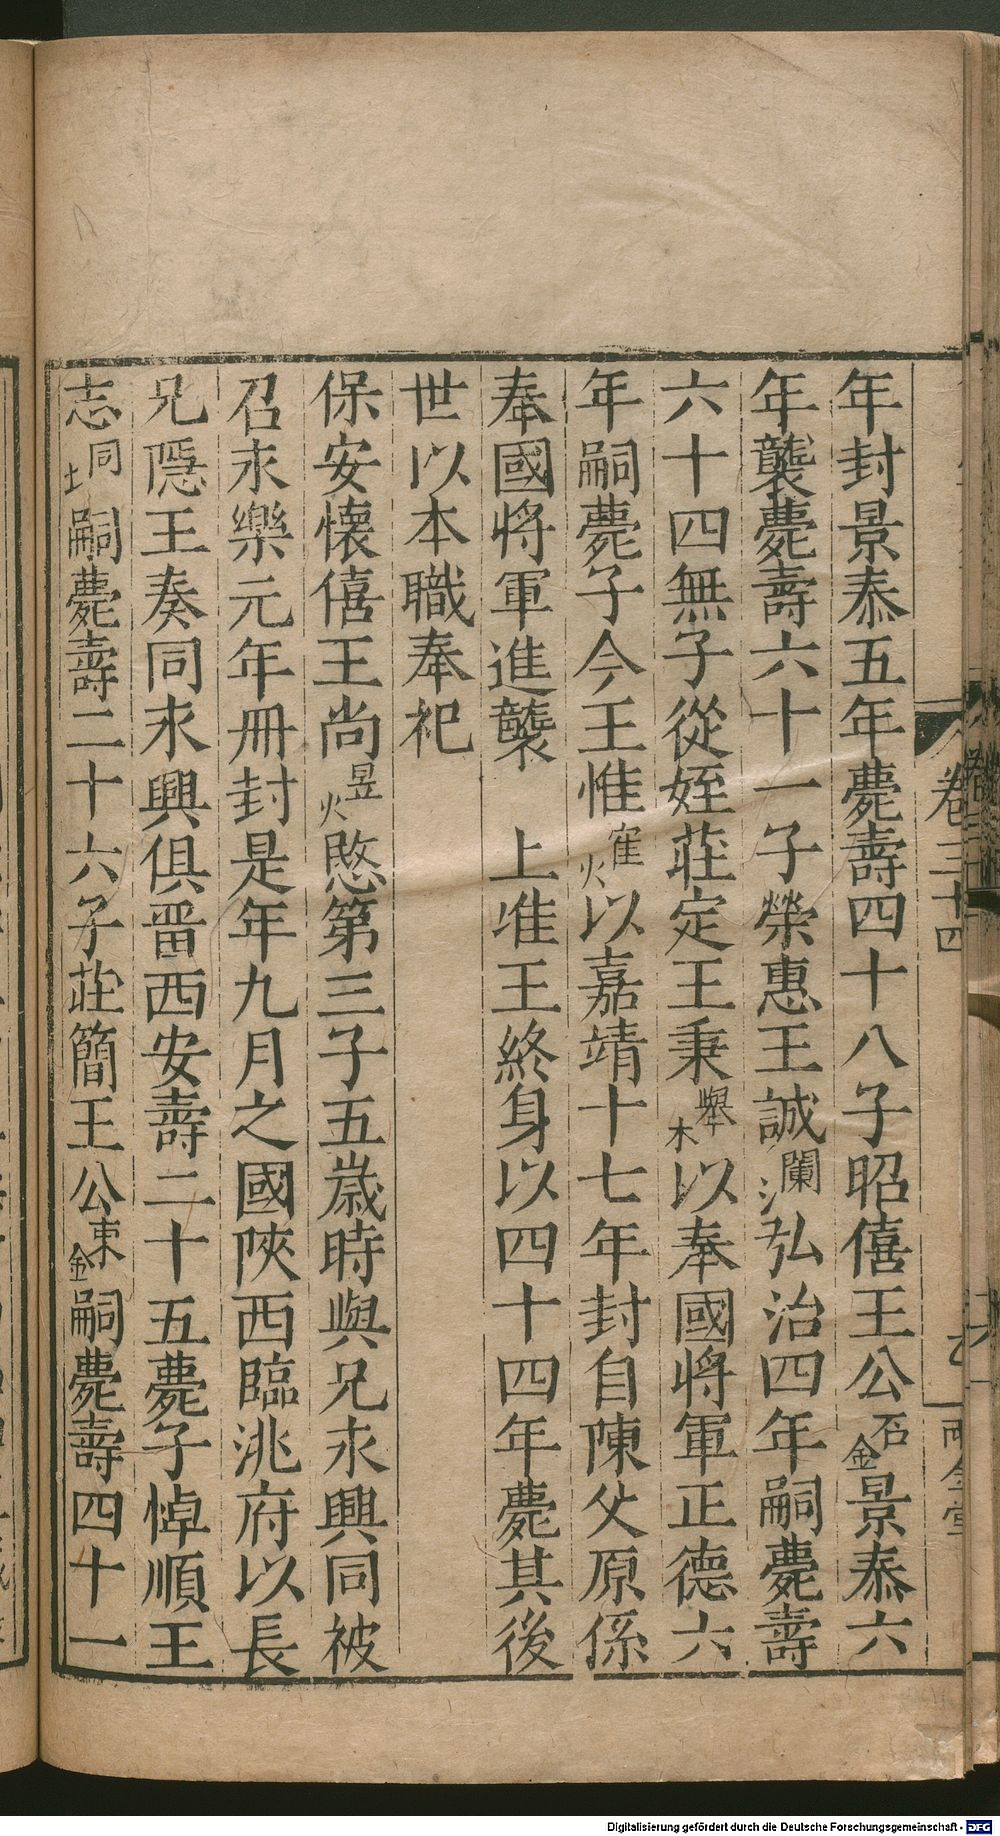 卷三十四
年封景泰五年薨壽四十八子昭僖王公鉐景泰六
年襲薨壽六十一子榮惠王誠瀾弘治四年嗣薨壽
六十四無子從姪莊定王秉欅以奉國將軍正德六
年嗣薨子今王惟⿰火寉以嘉靖十七年封自陳父原係
奉國將軍進襲　上准王終身以四十四年薨其後
世以本職奉祀
保安懷僖王尚煜愍第三子五歲時與兄永興同被
召永樂元年冊封是年九月之國陝西臨洮府以長
兄隱王奏同永興俱畱西安壽二十五薨子悼順王
志垌嗣薨壽二十六子莊簡王公鍊嗣薨壽四十一
Digitalisierung gefördert durch die Deutsche Forschungsgemeinschaft - DFG